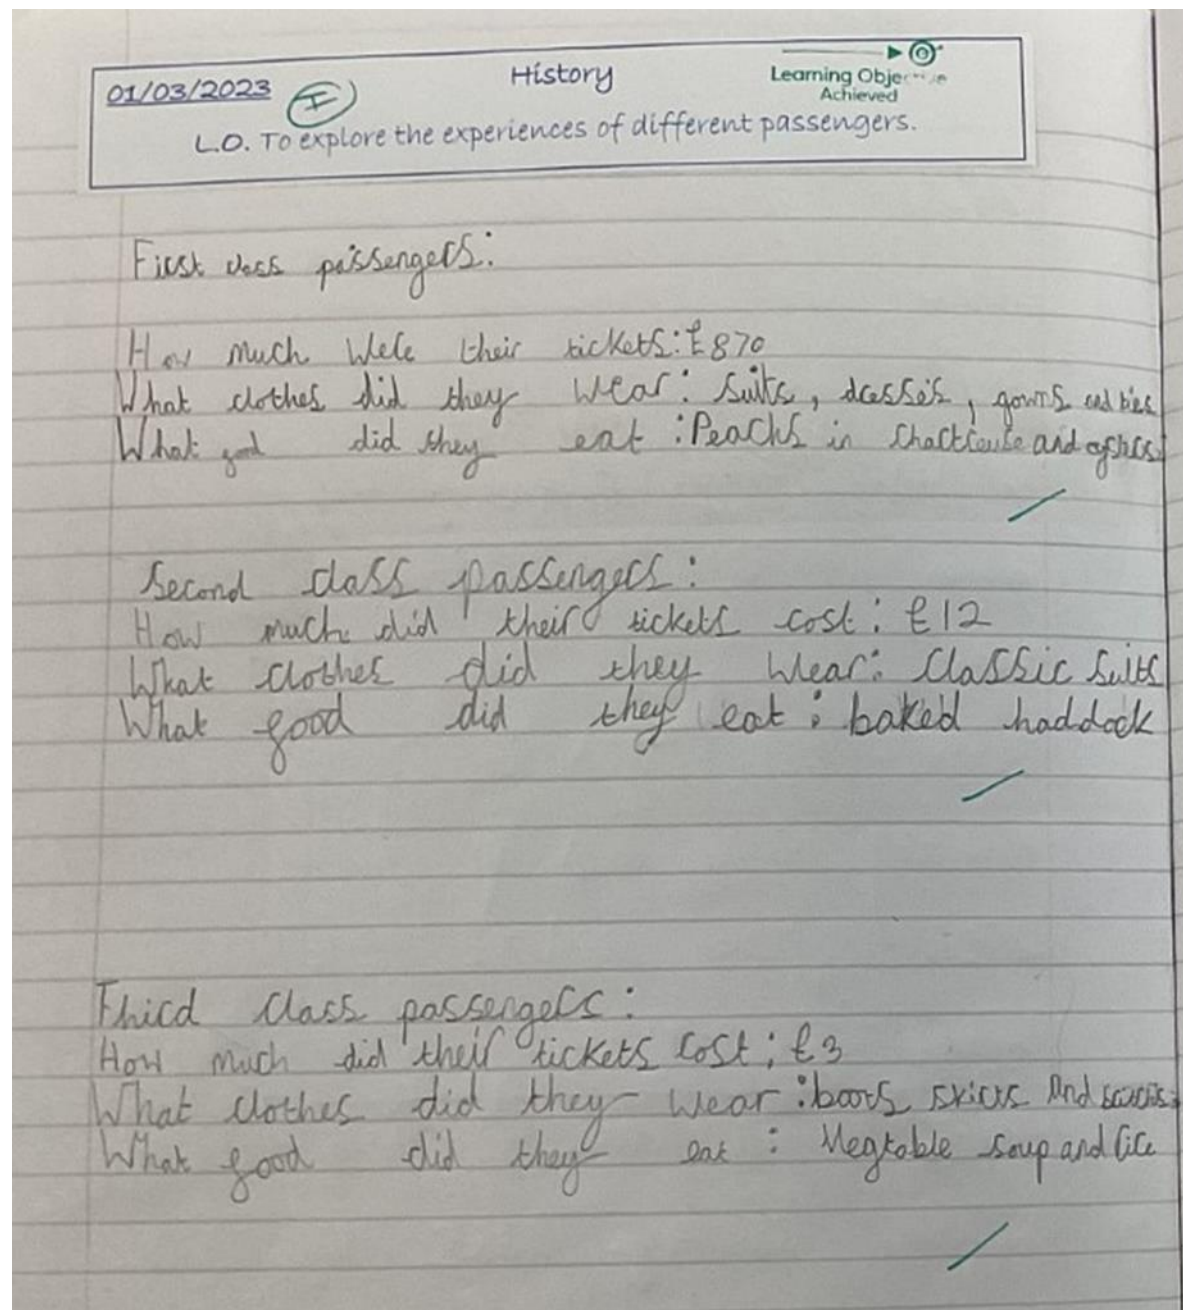 01/03/2023
I
History
Learning Objective
Achieved
L.O. To explore the experiences of different passengers.
First class passengers:
How much were their tickets: £870
What clothes did they wear: suits, dresses, gowns and ties
What food did they eat: Peachs in and
Second class passengers:
How much did their tickets cost: £12
What clothes did they wear: Classic suits
What food did they eat: baked haddock
Third class passengers:
How much did their tickets cost: £3
What clothes did they wear: boots skirts And
What food did they eat: Vegtable soup and rice